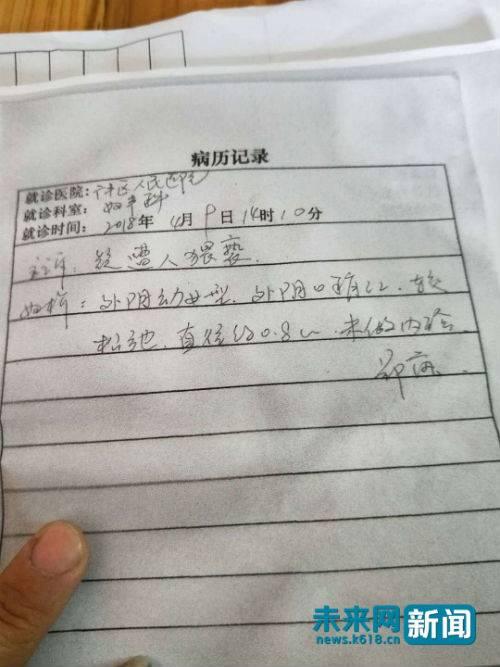 病历记录
就诊医院：区人民医院
就诊科室：妇产科
就诊时间：2018年4月9日14时10分
主诉：疑遭人猥亵.
妇检：外阴幼女型.外阴口稍红.较
松弛.直径约0.8cm.未做内检
未来网 新闻
news.k618.cn